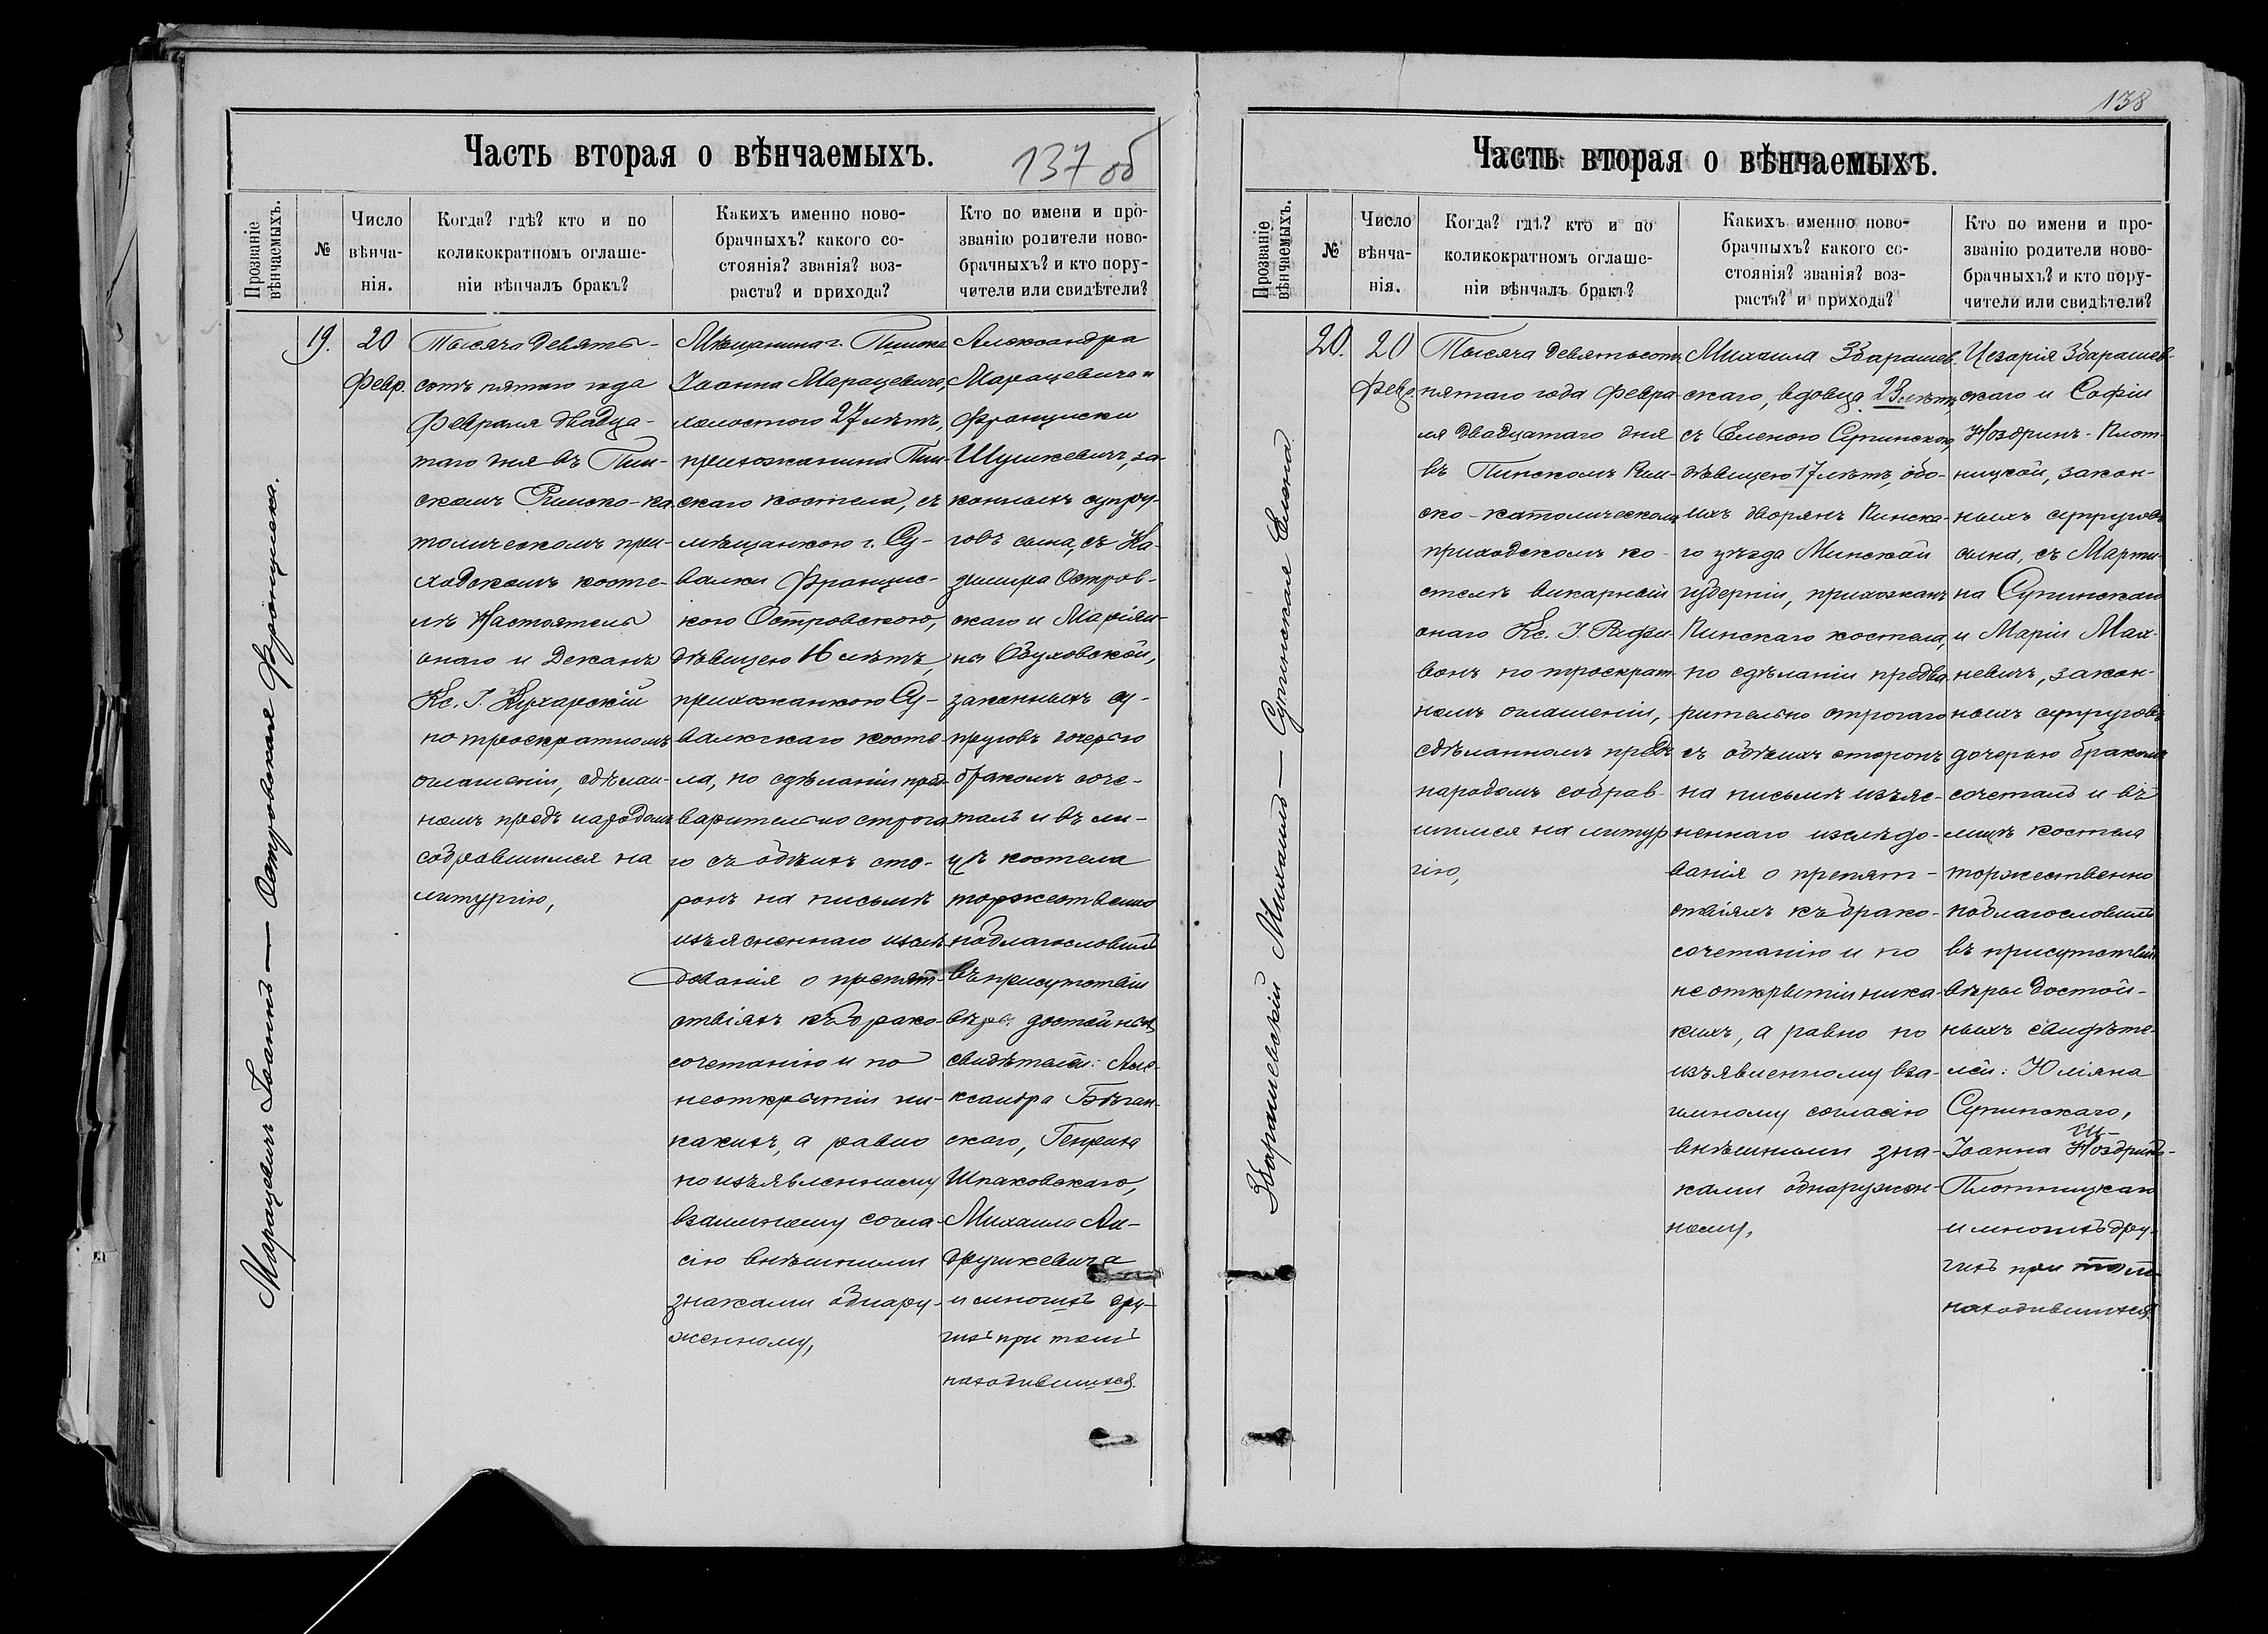 Часть вторая о вѣнчаемыхъ.
137 об
Прозваніе
вѣнчаемыхъ.
№
Число
вѣнча-
нія.
Когда? гдѣ? кто и по
коликократномъ оглаше-
ніи вѣнчалъ бракъ?
Какихъ именно ново-
брачныхъ? какого со-
стоянія? званія? воз-
раста? и прихода?
Кто по имени и про-
званію родители ново-
брачныхъ? и кто пору-
чители или свидѣтели?
Марацевичъ Іоаннъ — Островская Франциска.
19.
20
Февр.
Тысяча девять-
сотъ пятаго года
Февраля двадца-
таго дня въ Пин-
скомъ Римско-ка-
толическомъ при-
ходскомъ косте-
лѣ Настоятель
онаго и Деканъ
Кс. І. Кухарскій
по троекратномъ
оглашеніи, сдѣлан-
номъ предъ народомъ
собравшимся на
литургію,
Мѣщанина г. Пинска
Іоанна Марацевича,
холостого 27 лѣтъ,
прихожанина Пин-
скаго костела, съ
мѣщанкою г. Су-
валки Францис-
кою Островскою,
дѣвицею 16 лѣтъ,
прихожанкою Су-
валкскаго косте-
ла, по сдѣланіи пред-
варительно строга-
го съ обѣихъ сто-
ронъ на письмѣ
изъясненнаго изслѣ-
дованія о препят-
ствіяхъ къ брако-
сочетанію и по
неоткрытіи ни-
какихъ, а равно
по изъявленному
взаимному согла-
сію внѣшними
знаками обнару-
женному,
Александра
Марацевича и
Франциски
Шушкевичъ, за-
конныхъ супру-
говъ сына, съ Ка-
зимира Остров-
скаго и Маріан-
ны Озуховской,
законныхъ су-
пруговъ дочерью
бракомъ соче-
талъ и въ ли-
цѣ костела
торжественно
поблагословилъ
въ присутствіи
вѣры достойныхъ
свидѣтелей: Але-
ксандра Бѣган-
скаго, Генриха
Шпаковскаго,
Михаила Ан-
друшкевича
и многихъ дру-
гихъ при томъ
находившихся.
138
Часть вторая о вѣнчаемыхъ.
Прозваніе
вѣнчаемыхъ.
№
Число
вѣнча-
нія.
Когда? гдѣ? кто и по
коликократномъ оглаше-
ніи вѣнчалъ бракъ?
Какихъ именно ново-
брачныхъ? какого со-
стоянія? званія? воз-
раста? и прихода?
Кто по имени и про-
званію родители ново-
брачныхъ? и кто пору-
чители или свидѣтели?
Збарашевскій Михаилъ — Супинская Елена
20.
20
Февр.
Тысяча девятьсотъ
пятаго года Февра-
ля двадцатаго дня
въ Пинскомъ Рим-
ско-католическомъ
приходскомъ ко-
стелѣ викарный
онаго Кс. І.
по троекрат-
номъ оглашеніи,
сдѣланномъ предъ
народомъ собрав-
шимся на литур-
гію,
Михаила Збарашев-
скаго, вдовца 23 лѣтъ,
съ Еленою Супинскою,
дѣвицею 17 лѣтъ, обо-
ихъ дворянъ Пинска-
го уѣзда Минской
губерніи, прихожанъ
Пинскаго костела,
по сдѣланіи предва-
рительно строгаго
съ обѣихъ сторонъ
на письмѣ изъяс-
неннаго изслѣдо-
ванія о препят-
ствіяхъ къ брако-
сочетанію и по
неоткрытіи ника-
кихъ, а равно по
изъявленному вза-
имному согласію
внѣшними зна-
ками обнаружен-
ному,
Цезарія Збарашев-
скаго и Софіи
Ноздринъ-Плот-
ницкой, закон-
ныхъ супруговъ
сына, съ Марти-
на Супинскаго
и Маріи Мах-
невичъ, закон-
ныхъ супруговъ
дочерью бракомъ
сочеталъ и въ
лицѣ костела
торжественно
поблагословилъ
въ присутствіи
вѣры достой-
ныхъ свидѣте-
лей: Юліана
Супинскаго,
Іоанна Ноздринъ-
Плотницкаго
и многихъ дру-
гихъ при томъ
находившихся.